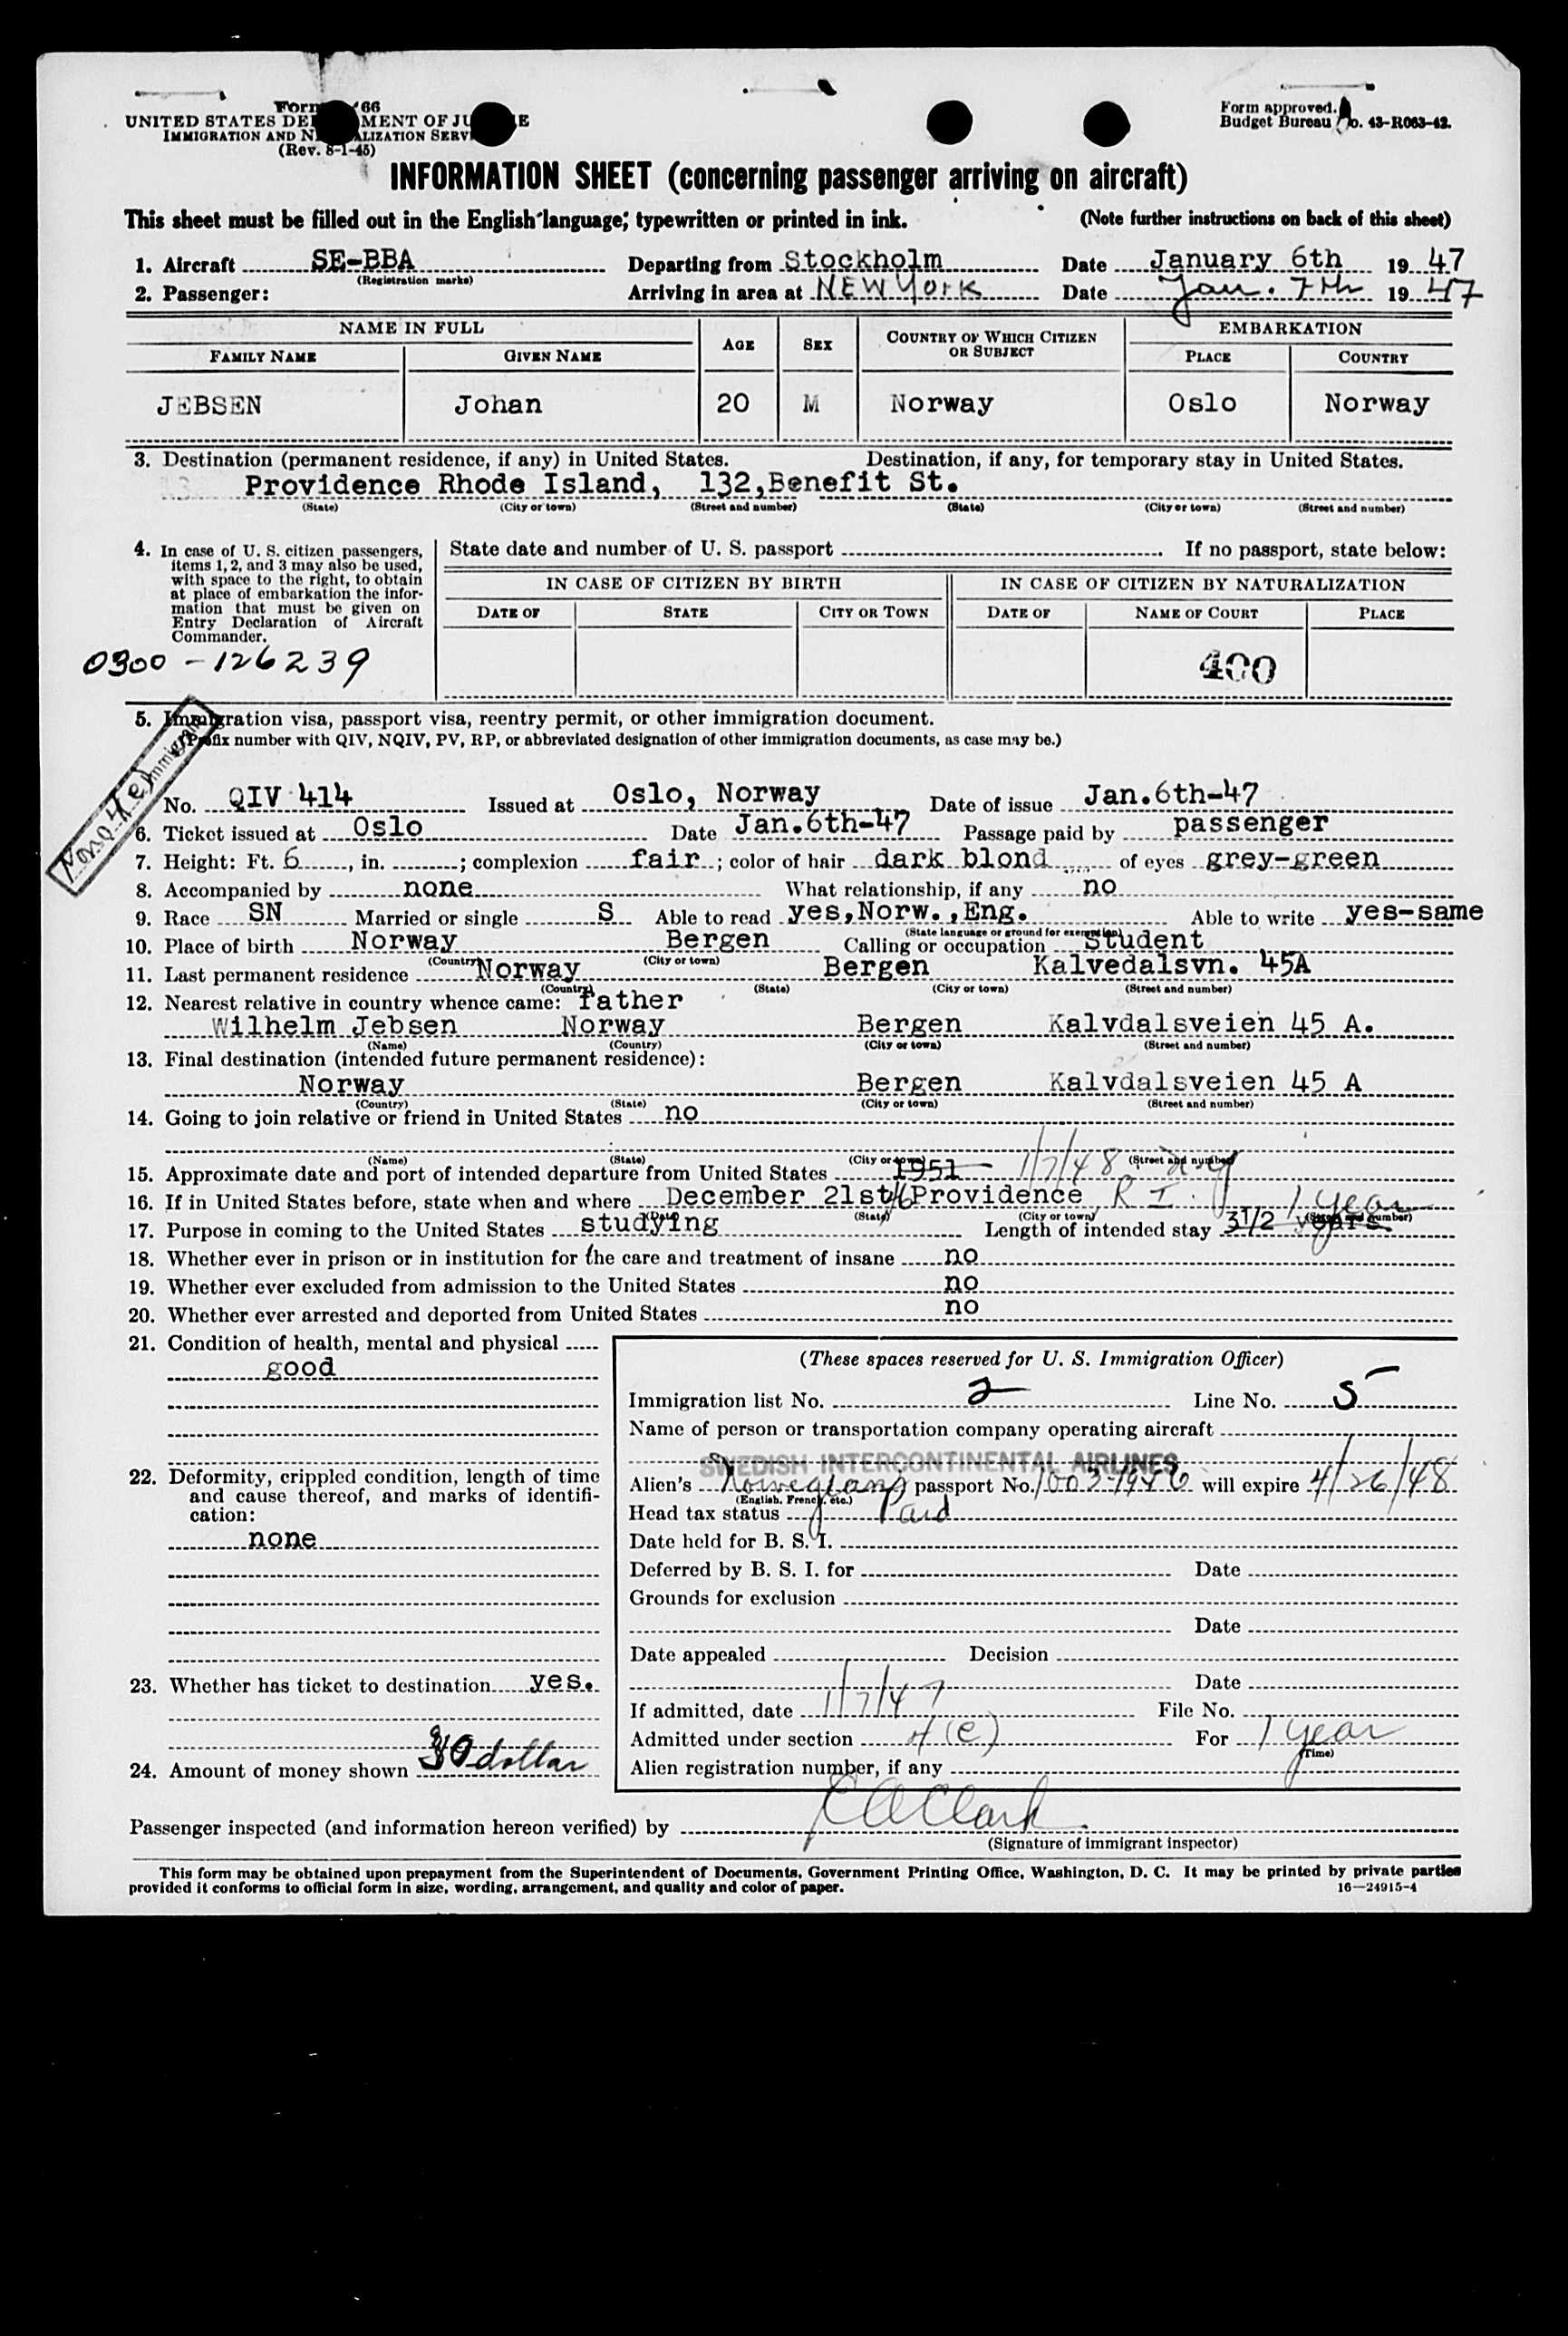 Form 66
UNITED STATES DE MENT OF JU E
IMMIGRATION AND N ALIZATION SERV
(Rev. 8-1-45)
Form approved.
Budget Bureau No. 43-R063-42.
INFORMATION SHEET (concerning passenger arriving on aircraft)
This sheet must be filled out in the English language, typewritten or printed in ink. (Note further instructions on back of this sheet)
1. Aircraft SE-BBA Departing from Stockholm Date January 6th 19 47
(Registration marks)
2. Passenger: Arriving in area at NEW York Date Jan. 7th 19 47
NAME IN FULL AGE SEX COUNTRY OF WHICH CITIZEN OR SUBJECT EMBARKATION
FAMILY NAME GIVEN NAME PLACE COUNTRY
JEBSEN Johan 20 M Norway Oslo Norway
3. Destination (permanent residence, if any) in United States. Destination, if any, for temporary stay in United States.
Providence Rhode Island, 132,Benefit St.
(State) (City or town) (Street and number) (State) (City or town) (Street and number)
4. In case of U. S. citizen passengers, items 1, 2, and 3 may also be used, with space to the right, to obtain at place of embarkation the information that must be given on Entry Declaration of Aircraft Commander.
State date and number of U. S. passport If no passport, state below:
IN CASE OF CITIZEN BY BIRTH IN CASE OF CITIZEN BY NATURALIZATION
DATE OF STATE CITY OR TOWN DATE OF NAME OF COURT PLACE
0300 - 126239
400
5. Immigration visa, passport visa, reentry permit, or other immigration document.
(Prefix number with QIV, NQIV, PV, RP, or abbreviated designation of other immigration documents, as case may be.)
4(e) Immigrant
No. QIV 414 Issued at Oslo, Norway Date of issue Jan.6th-47
6. Ticket issued at Oslo Date Jan.6th-47 Passage paid by passenger
7. Height: Ft. 6, in. ; complexion fair ; color of hair dark blond of eyes grey-green
8. Accompanied by none What relationship, if any no
9. Race SN Married or single S Able to read yes,Norw.,Eng. Able to write yes-same
(State language or ground for exemption)
10. Place of birth Norway Bergen Calling or occupation Student
(Country) (City or town)
11. Last permanent residence Norway Bergen Kalvedalsvn. 45A
(Country) (State) (City or town) (Street and number)
12. Nearest relative in country whence came: father
Wilhelm Jebsen Norway Bergen Kalvdalsveien 45 A.
(Name) (Country) (City or town) (Street and number)
13. Final destination (intended future permanent residence):
Norway Bergen Kalvdalsveien 45 A
(Country) (State) (City or town) (Street and number)
14. Going to join relative or friend in United States no
(Name) (State) (City or town) (Street and number)
15. Approximate date and port of intended departure from United States 1951 1/7/48
16. If in United States before, state when and where December 21st Providence R I.
(Date) (State) (City or town) (Street and number)
17. Purpose in coming to the United States studying Length of intended stay 3 1/2 years 1 year
18. Whether ever in prison or in institution for the care and treatment of insane no
19. Whether ever excluded from admission to the United States no
20. Whether ever arrested and deported from United States no
21. Condition of health, mental and physical
good
22. Deformity, crippled condition, length of time and cause thereof, and marks of identification:
none
23. Whether has ticket to destination yes.
24. Amount of money shown 30 dollar
(These spaces reserved for U. S. Immigration Officer)
Immigration list No. 2 Line No. 5
Name of person or transportation company operating aircraft
SWEDISH INTERCONTINENTAL AIRLINES
Alien's Norwegian passport No. will expire 4/26/48
(English, French, etc.)
Head tax status Paid
Date held for B. S. I.
Deferred by B. S. I. for Date
Grounds for exclusion
Date
Date appealed Decision
Date
If admitted, date 1/7/47 File No.
Admitted under section 4(e) For 1 year
(Time)
Alien registration number, if any
Passenger inspected (and information hereon verified) by C A Clark
(Signature of immigrant inspector)
This form may be obtained upon prepayment from the Superintendent of Documents, Government Printing Office, Washington, D. C. It may be printed by private parties
provided it conforms to official form in size, wording, arrangement, and quality and color of paper. 16—24915-4